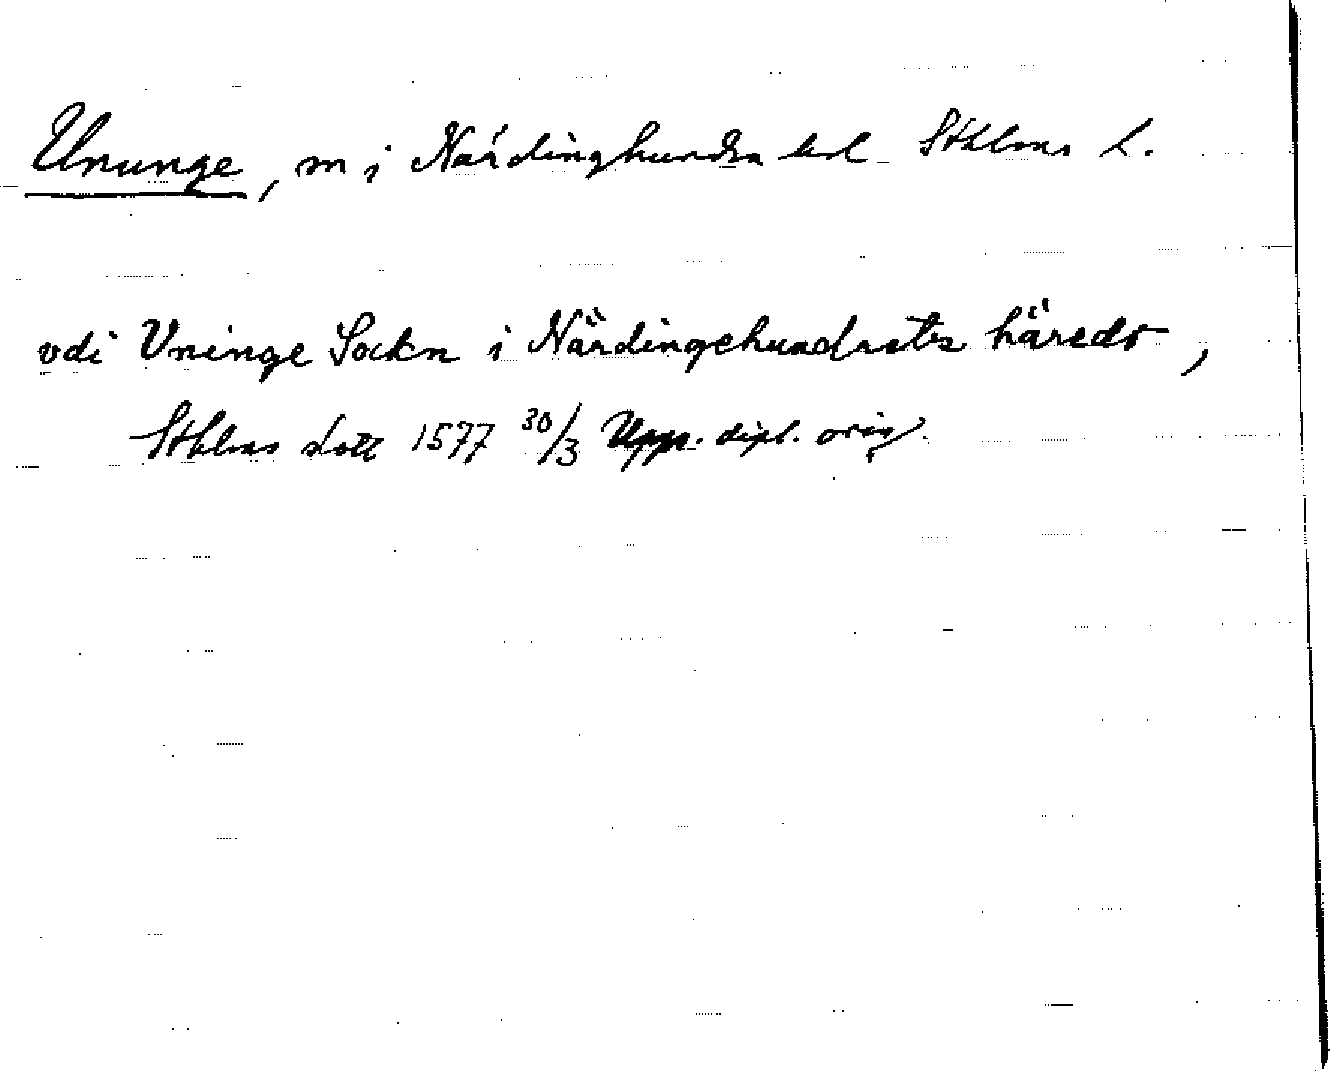 Ununge, sn i Närdinghundra hd Sthlms l.
vdi Vninge Sockn i Närdingehundrats häredt,
Sthlms slott 1577 30/3 Upps. dipl. orig.